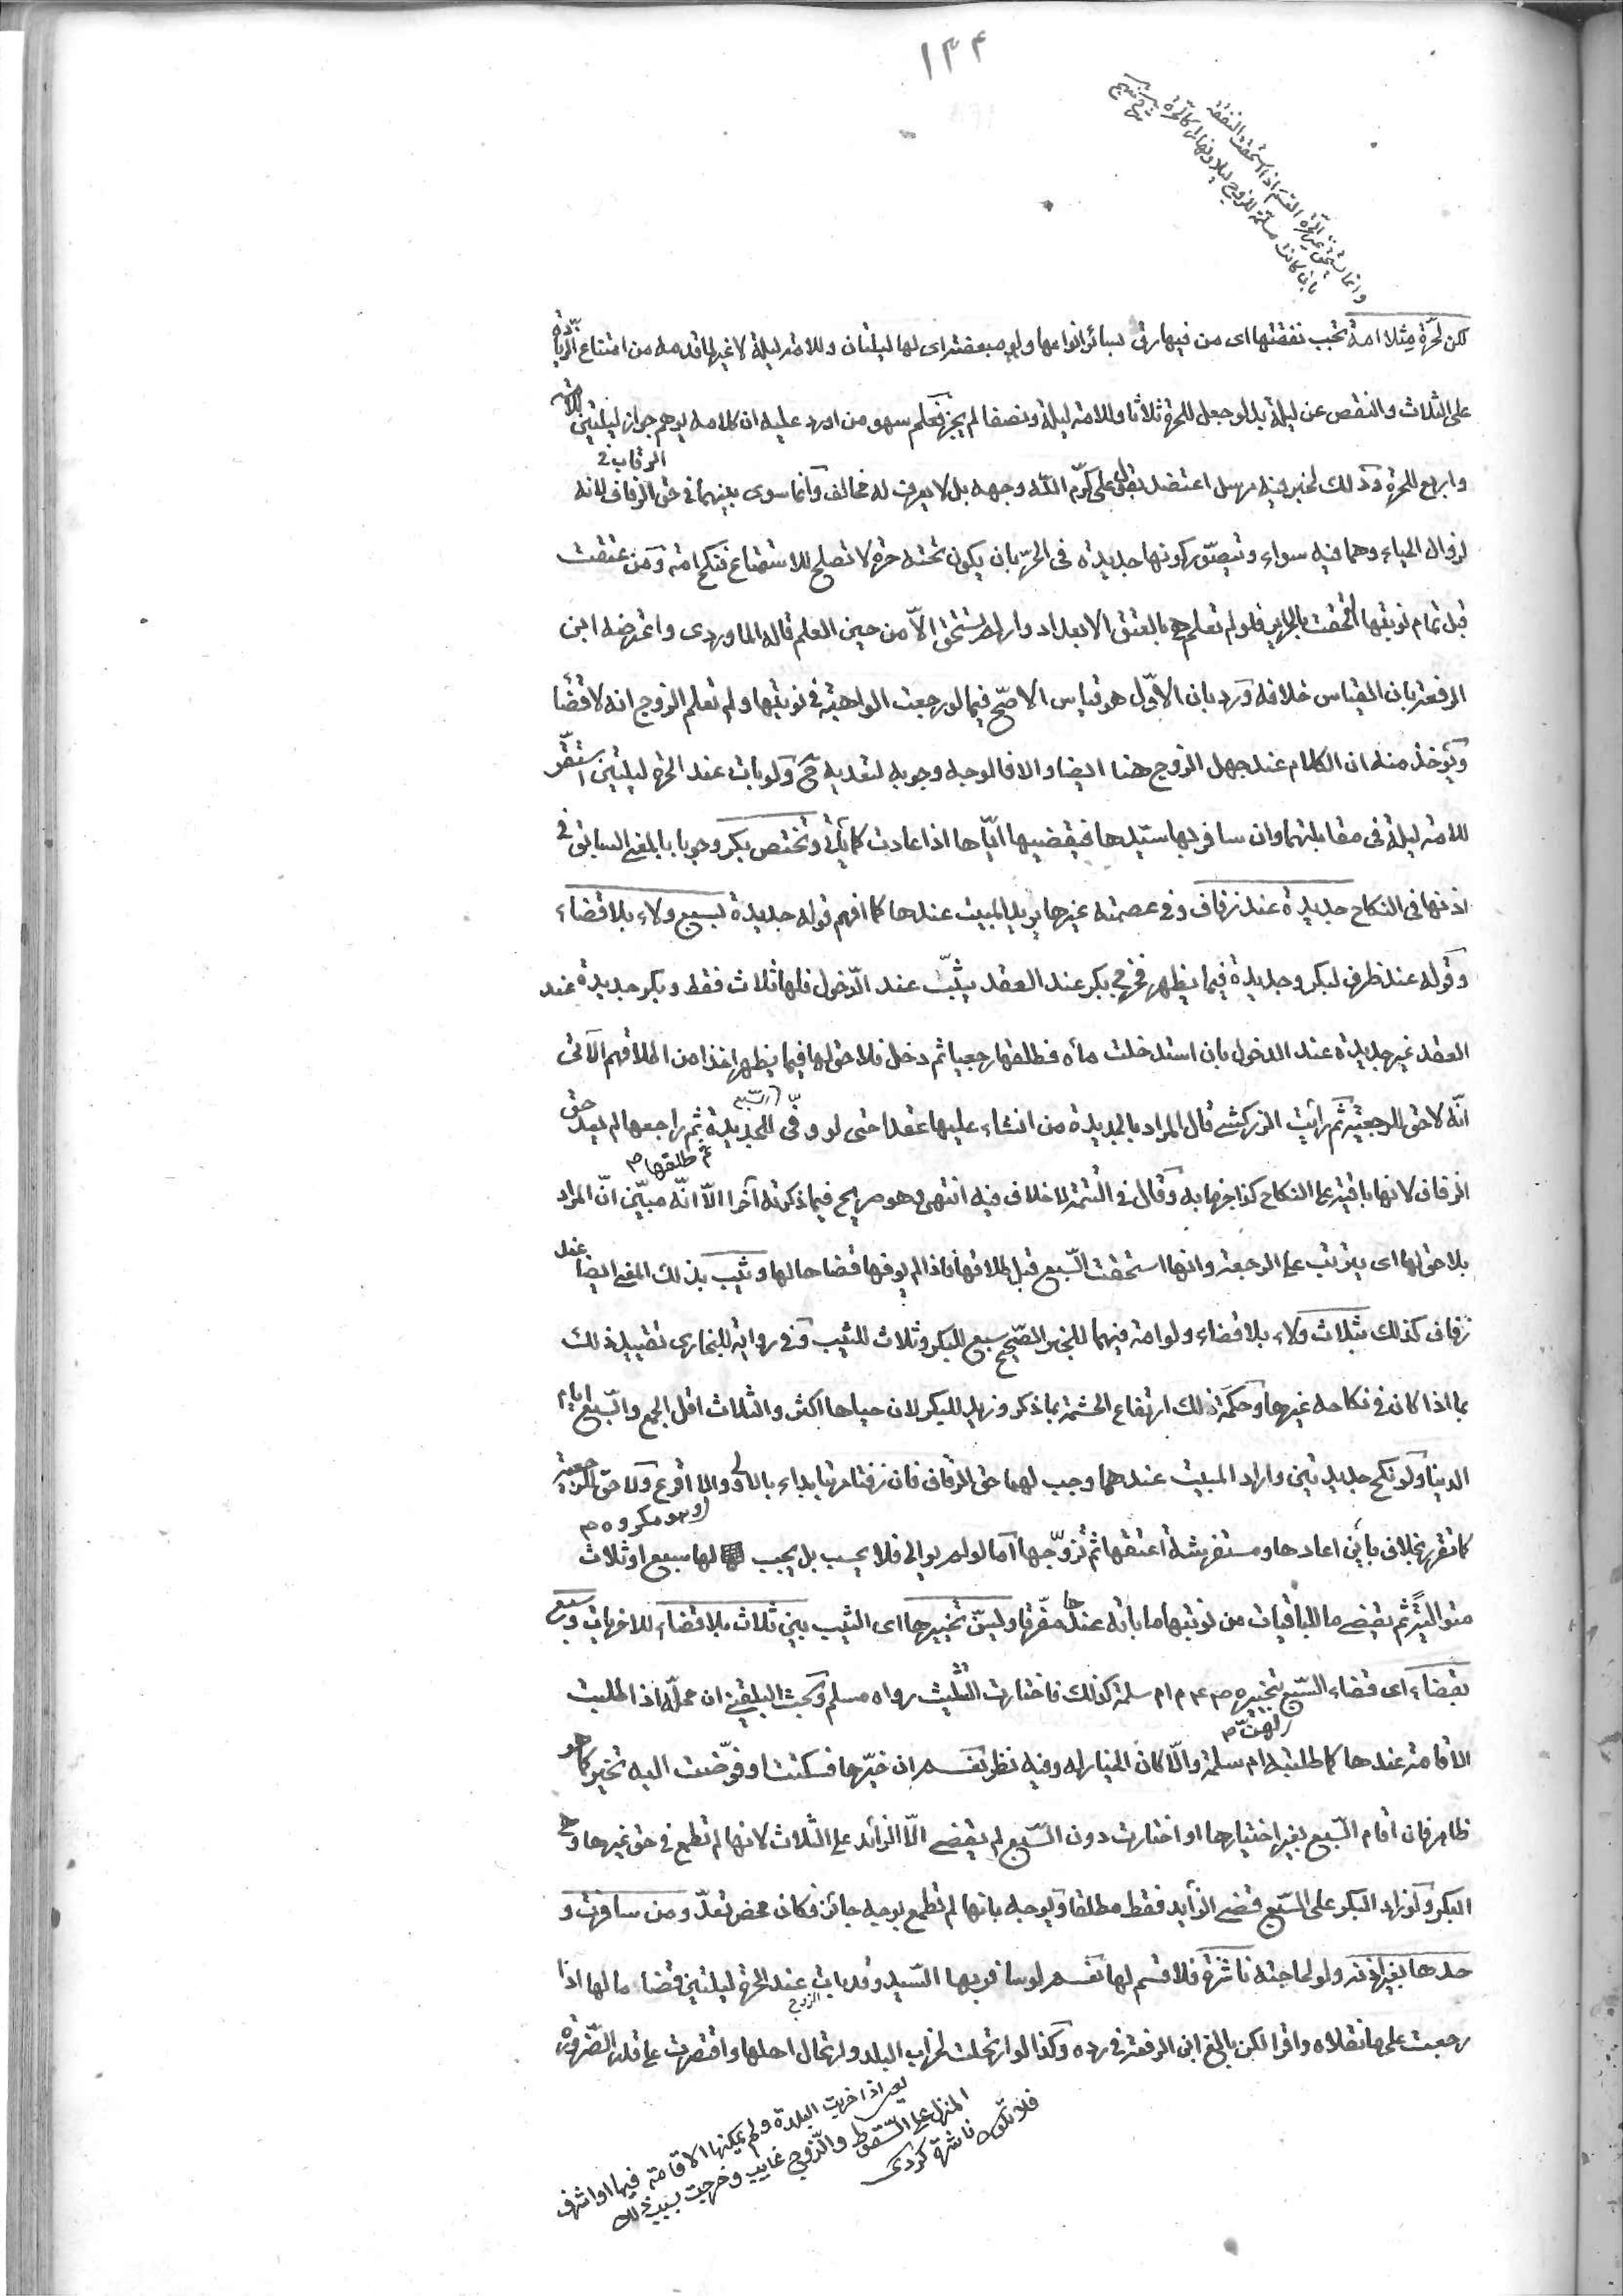 ١٣٤
وانما تستحق غير الحرة القسم اذا استحقت النفقة
بان كانت مسلمة للزوج ليلا ونهارا كالحرة
لكن لحرة مثلا امة تجب نفقتها اى من فيها رق بسائر انواعها ولو مبعضة اى لها ليلتان وللامة ليلة لا غير لما قدمه من امتناع الزيادة
على الثلاث والنقص عن ليلة بل لو جعل للحرة ثلاثا وللامة ليلة ونصفا لم يجز فعلم سهو من اورد عليه ان كلامه يوهم جواز ليلتين للامة
واربع للحرة وذلك لخبر فيه مرسل اعتضد بقول على كرّم اللّه وجهه بل لا يعرف له مخالف وانما سوى بينهما فى حق الزفاف لانه
الزفاف
لزوال الحياء وهما فيه سواء ويتصوّر كونها جديدة فى الحرّ بان يكون تحته حرة لا تصلح للاستمتاع فنكح امة ومن عتقت
قبل تمام نوبتها التحقت بالحراير فلو لم تعلم هى بالعتق الا بعد ادوار لم تستحق الاّ من حين العلم قاله الماوردى واعترضه ابن
الرفعة بان القياس خلافه ورد بان الاوّل هو قياس الاصحّ فيما لو رجعت الواهبة فى نوبتها ولم تعلم الزوج انه لا قضا
ويؤخذ منه ان الكلام عند جهل الزوج هنا ايضا والا فالوجه وجوبه لتعديه ح ولو بات عند الحرة ليلتين استقر
للامة ليلة فى مقابلتهما وان سافر بها سيّدها فيقضيها ايّاها اذا عادت كما يأتى وتختص بكر وجوبا بالمعنى السابق فى
اذنها فى النكاح جديدة عند زفاف وفى عصمته غيرها يريد المبيت عندها كما افهم قوله جديدة بسبع ولاء بلا قضاء
وقوله عند ظرف لبكر وجديدة فيما يظهر فخرج بكر عند العقد ثيّب عند الدّخول فلها ثلاث فقط وبكر جديدة عند
العقد غير جديدة عند الدخول بان استدخلت ماءه فطلقها رجعيا ثم دخل فلا حق لها فيما يظهر اخذا من اطلاقهم الآتى
انّه لا حق للرجعية ثم رأيت الزركشى قال المراد بالجديدة من انشاء عليها عقدا حتى لو وفّى الجديدة ثم راجعها لم يعد حق
السبع
ثم طلقها ص
الزفاف لانها باقية على النكاح كذا جزما به وقال فى التتمة لا خلاف فيه انتهى وهو صريح فيما ذكرته آخرا الاّ انّه مبيّن انّ المراد
بلا حق لها اى يترتب على الرجعة وانها استحقت السّبع قبل طلاقها فاذا لم يوفها قضاها لها وثيب بذلك المعنى ايضا عند
زفاف كذلك بثلاث ولاء بلا قضاء ولو امة فيهما للخبر الصّحيح سبع للبكر وثلاث للثيب وفى رواية للبخارى تقييد ذلك
بما اذا كان فى نكاحه غيرها وحكمة ذلك ارتفاع الحشمة بما ذكر وزيد للبكر لان حياها اكثر والثلاث اقل الجمع والسّبع ايام
الدنيا ولو نكح جديدتين واراد المبيت عندهما وجب لهما حق الزفاف فان زفتا مرتبا بداء بالاولى والا اقرع ولا حقّ لرجعية
وهو مكروه ص
كما تقرر بخلاف باين اعادها ومستفرشة اعتقها ثم تزوّجها اما لو لم يوالى فلا يحسب بل يجب لها سبع او ثلاث
متوالية ثم يقضى ما للباقيات من نوبتها ما باته عندها مفرّقا ويسنّ تخييرها اى الثيب بين ثلاث بلا قضاء للاخريات وسبع
بقضاء اى قضاء السّبع لتخييره ص ع م ام سلمة كذلك فاختارت التثليث رواه مسلم وبحث البلقينى ان محلّه اذا طلبت
لهنّ ص
الاقامة عندها كما طلبته ام سلمة والاّ كان الخيار له وفيه نظر نعم ان خيّرها فسكتت او فوّضت اليه تخير كما هو
ظاهر فان اقام السّبع بغير اختيارها او اختارت دون السّبع لم يقض الاّ الزائد على الثلاث لانها لم تطمع فى حق غيرها وهو
البكر ولو زاد البكر على السّبع قضى الزّايد فقط مطلقا ويوجه بانها لم تطمع بوجه جائز فكان محض تعدّ ومن سافرت و
حدها بغير اذنه ولو لحاجته ناشزة فلا قسم لها نعم لو سافر بها السّيد وقد بات عند الحرة ليلتين قضا ما لها اذا
الزوج
رجعت على ما نقلاه واقرا لكن بالغ ابن الرفعة فى رده وكذا لو ارتحلت لخراب البلد وارتحال اهلها واقتصرت على قدر الضّرورة
يعنى اذا خربت البلدة ولم يمكنها الاقامة فيها او اشرف
المنزل على السّقوط والزّوج غايب وخرجت بسبب ذلك
فلا تكون ناشزة كردى